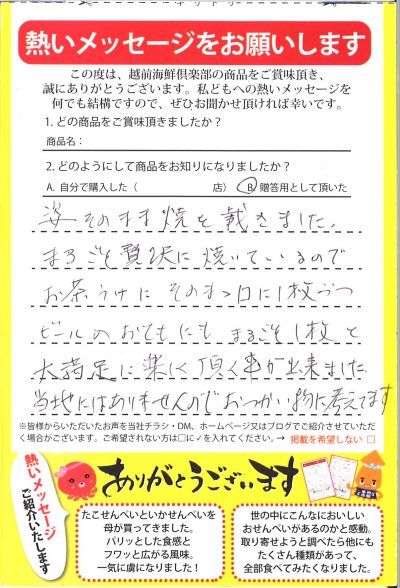 熱いメッセージをお願いします
この度は、越前海鮮倶楽部の商品をご賞味頂き、
誠にありがとうございます。私どもへの熱いメッセージを
何でも結構ですので、ぜひお聞かせ頂ければ幸いです。
1. どの商品をご賞味頂きましたか？
商品名：
2. どのようにして商品をお知りになりましたか？
A. 自分で購入した（　　　　店） B. 贈答用として頂いた
姿そのまま焼を戴きました。
まるごと贅沢に焼いているので
お茶うけにそのまゝ口に1枚づつ
ビールのおともにもまるごと1枚と
大満足に楽しく頂く事が出来ました
当地にはありませんのでおつかい物に考えてます
※皆様からいただいたお声を当社チラシ・DM、ホームページ又はブログでご紹介させていただ
く場合がございます。ご希望されない方は□に✓を入れてください。→ 掲載を希望しない □
熱いメッセージ
ご紹介いたします
ありがとうございます
たこせんべいといかせんべいを
母が買ってきました。
パリッとした食感と
フワッと広がる風味。
一気に虜になりました！
世の中にこんなにおいしい
おせんべいがあるのかと感動。
取り寄せようと調べたら他にも
たくさん種類があって、
全部食べてみたくなりました。